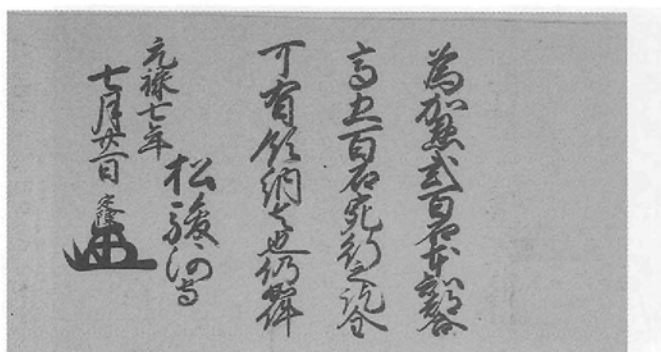 為加恩弐百石本知都合
高五百石宛行之訖全
可有領納者也仍如件
元禄七年
七月廿一日
松駿河守
定陳